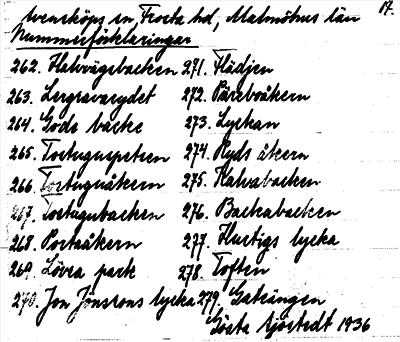 Svensköps sn, Frosta hd, Malmöhus län 17.
Nummerförklaringar
262. Halvvägsbacken 271. Flädjen
263. Lergravarydet 272. Päreboåkern
264. Gods backe 273. Lyckan
265. Torpuguspetsen 274. Ryds åkern
266. åkern 275. Kalvabacken
267. backen 276. Backabacken
268. Portaåkern 277. Hurtigs lycka
269. Lövra park 278. Toften
270. Jon Jönssons lycka 279. Gatsängen
Gösta Sjöstedt 1936